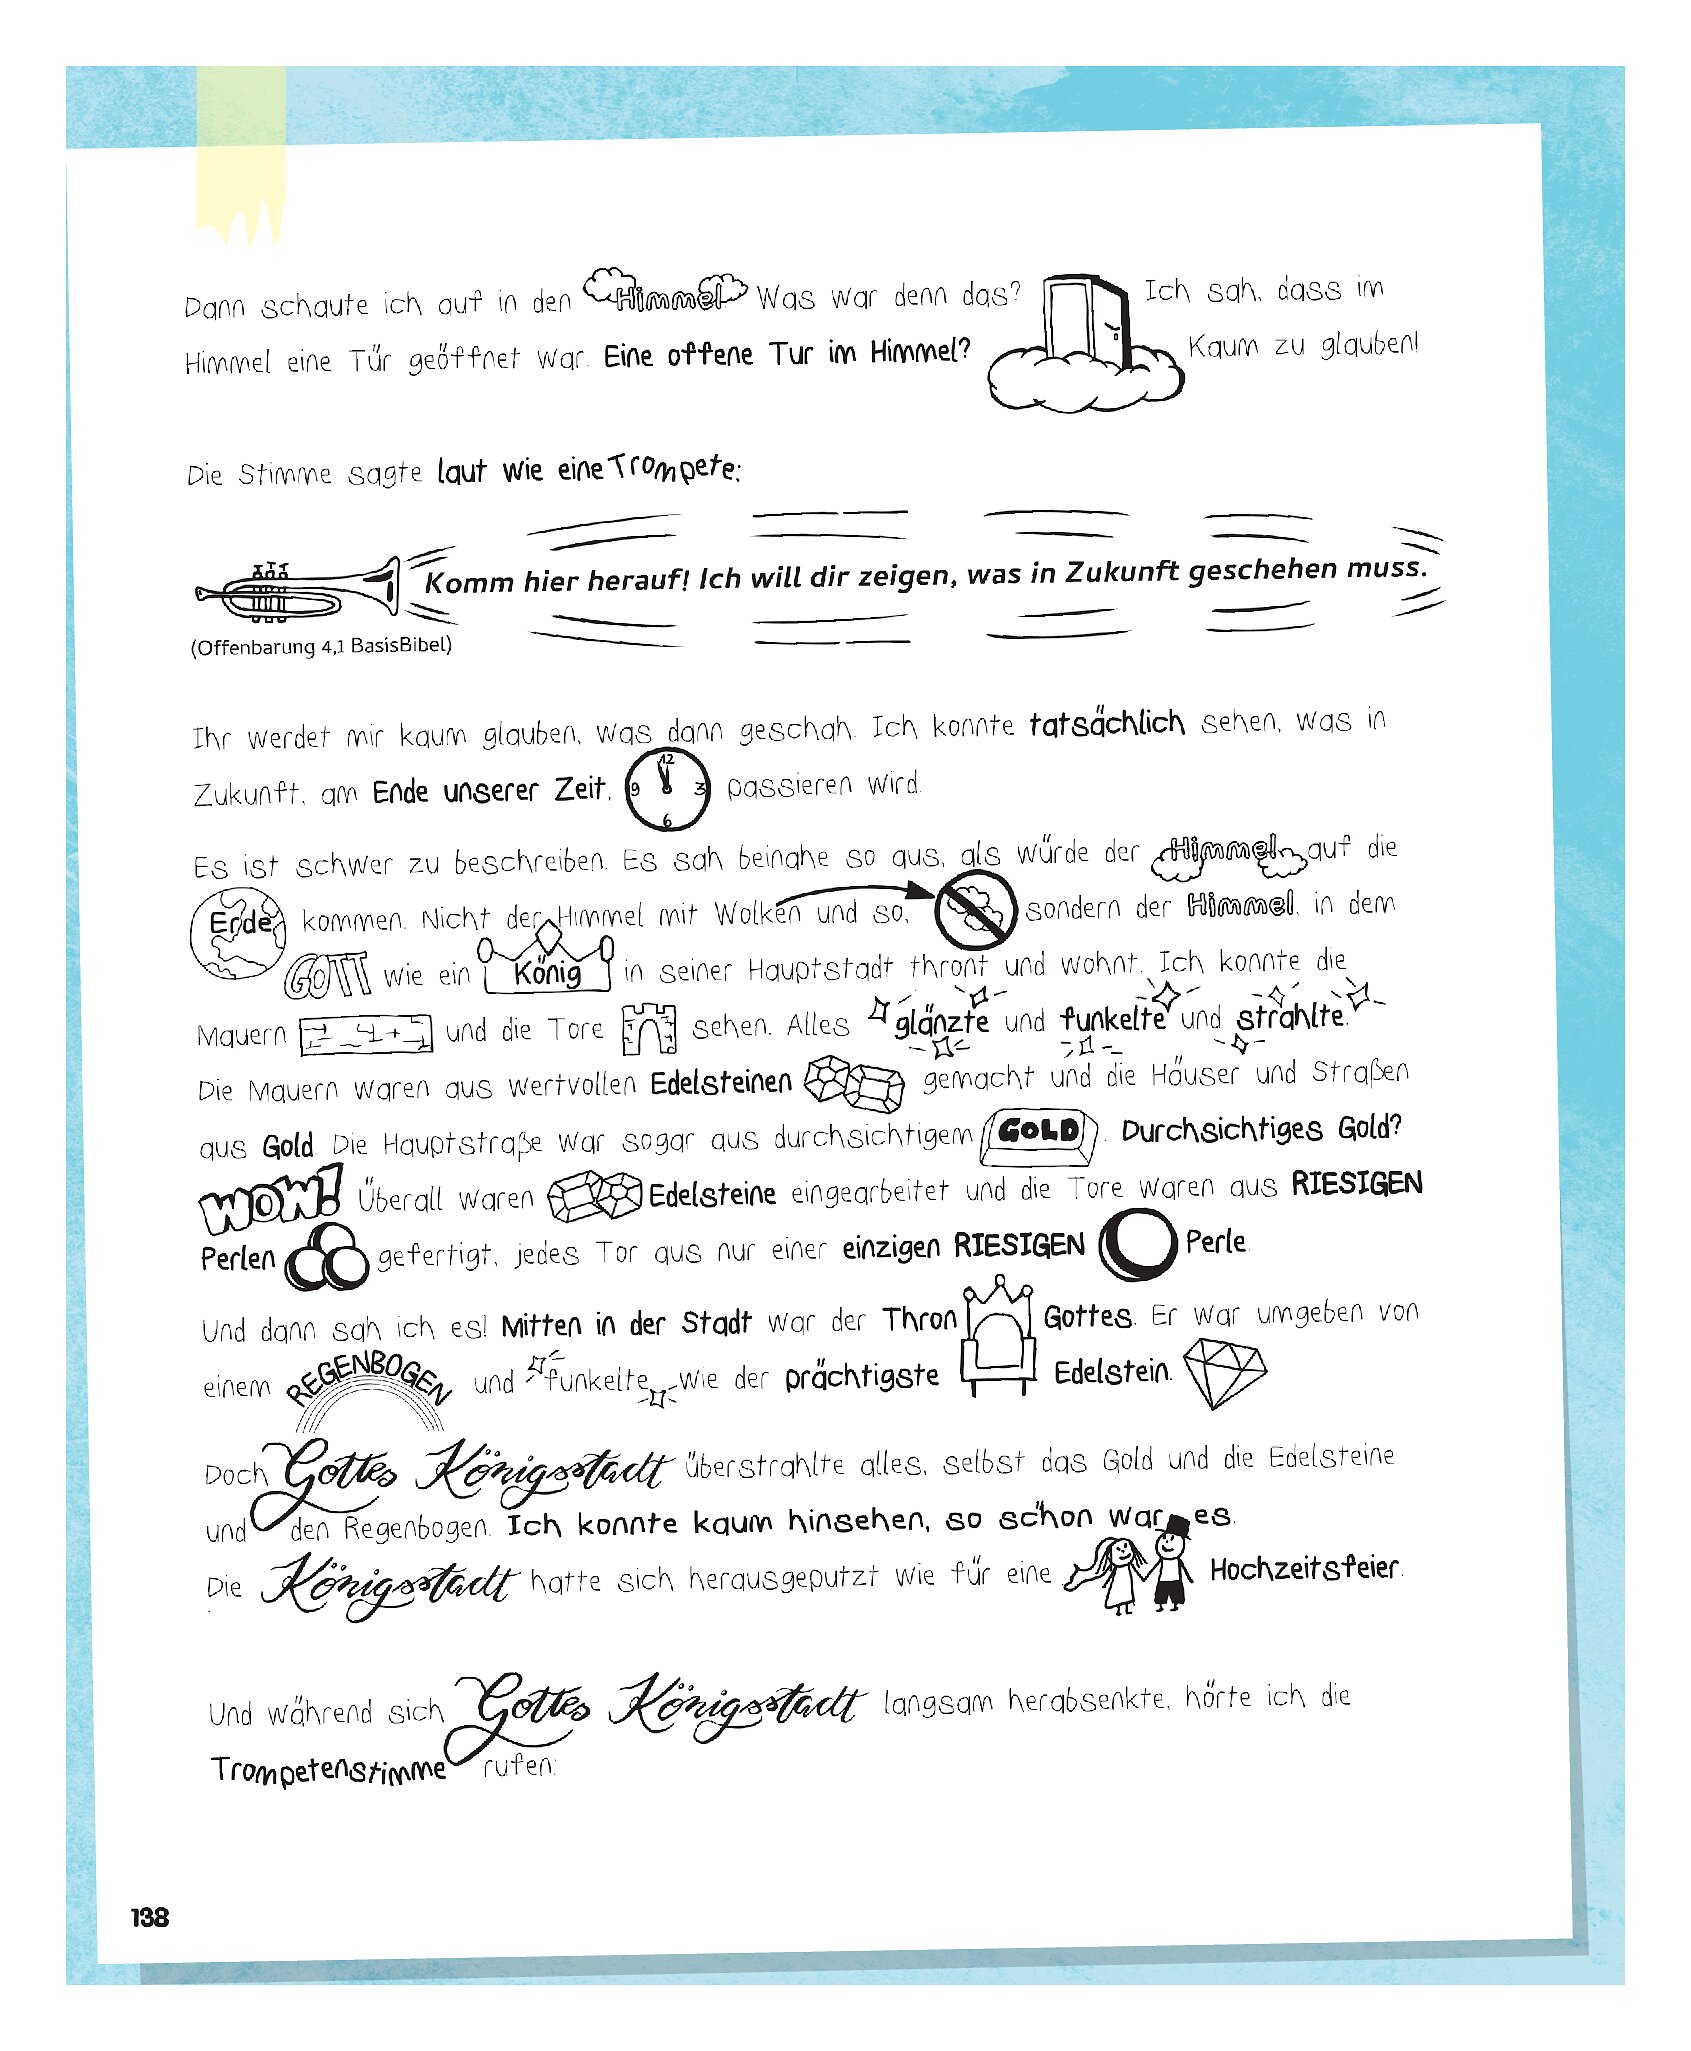 Dann schaute ich auf in den Himmel Was war denn das? Ich sah, dass im
Himmel eine Tür geöffnet war. Eine offene Tur im Himmel? Kaum zu glauben!
Die Stimme sagte laut wie eine Trompete:
Komm hier herauf! Ich will dir zeigen, was in Zukunft geschehen muss.
(Offenbarung 4,1 BasisBibel)
Ihr werdet mir kaum glauben, was dann geschah. Ich konnte tatsächlich sehen, was in
Zukunft, am Ende unserer Zeit, 12 3 6 9 passieren wird.
Es ist schwer zu beschreiben. Es sah beinahe so aus, als würde der Himmel auf die
Erde kommen. Nicht der Himmel mit Wolken und so, sondern der Himmel, in dem
GOTT wie ein König in seiner Hauptstadt thront und wohnt. Ich konnte die
Mauern und die Tore sehen. Alles glänzte und funkelte und strahlte.
Die Mauern waren aus wertvollen Edelsteinen gemacht und die Häuser und Straßen
aus Gold. Die Hauptstraße war sogar aus durchsichtigem GOLD. Durchsichtiges Gold?
WOW! Überall waren Edelsteine eingearbeitet und die Tore waren aus RIESIGEN
Perlen gefertigt, jedes Tor aus nur einer einzigen RIESIGEN Perle.
Und dann sah ich es! Mitten in der Stadt war der Thron Gottes. Er war umgeben von
einem REGENBOGEN und funkelte wie der prächtigste Edelstein.
Doch Gottes Königsstadt überstrahlte alles, selbst das Gold und die Edelsteine
und den Regenbogen. Ich konnte kaum hinsehen, so schön war es.
Die Königsstadt hatte sich herausgeputzt wie für eine Hochzeitsfeier.
Und während sich Gottes Königsstadt langsam herabsenkte, hörte ich die
Trompetenstimme rufen:
138